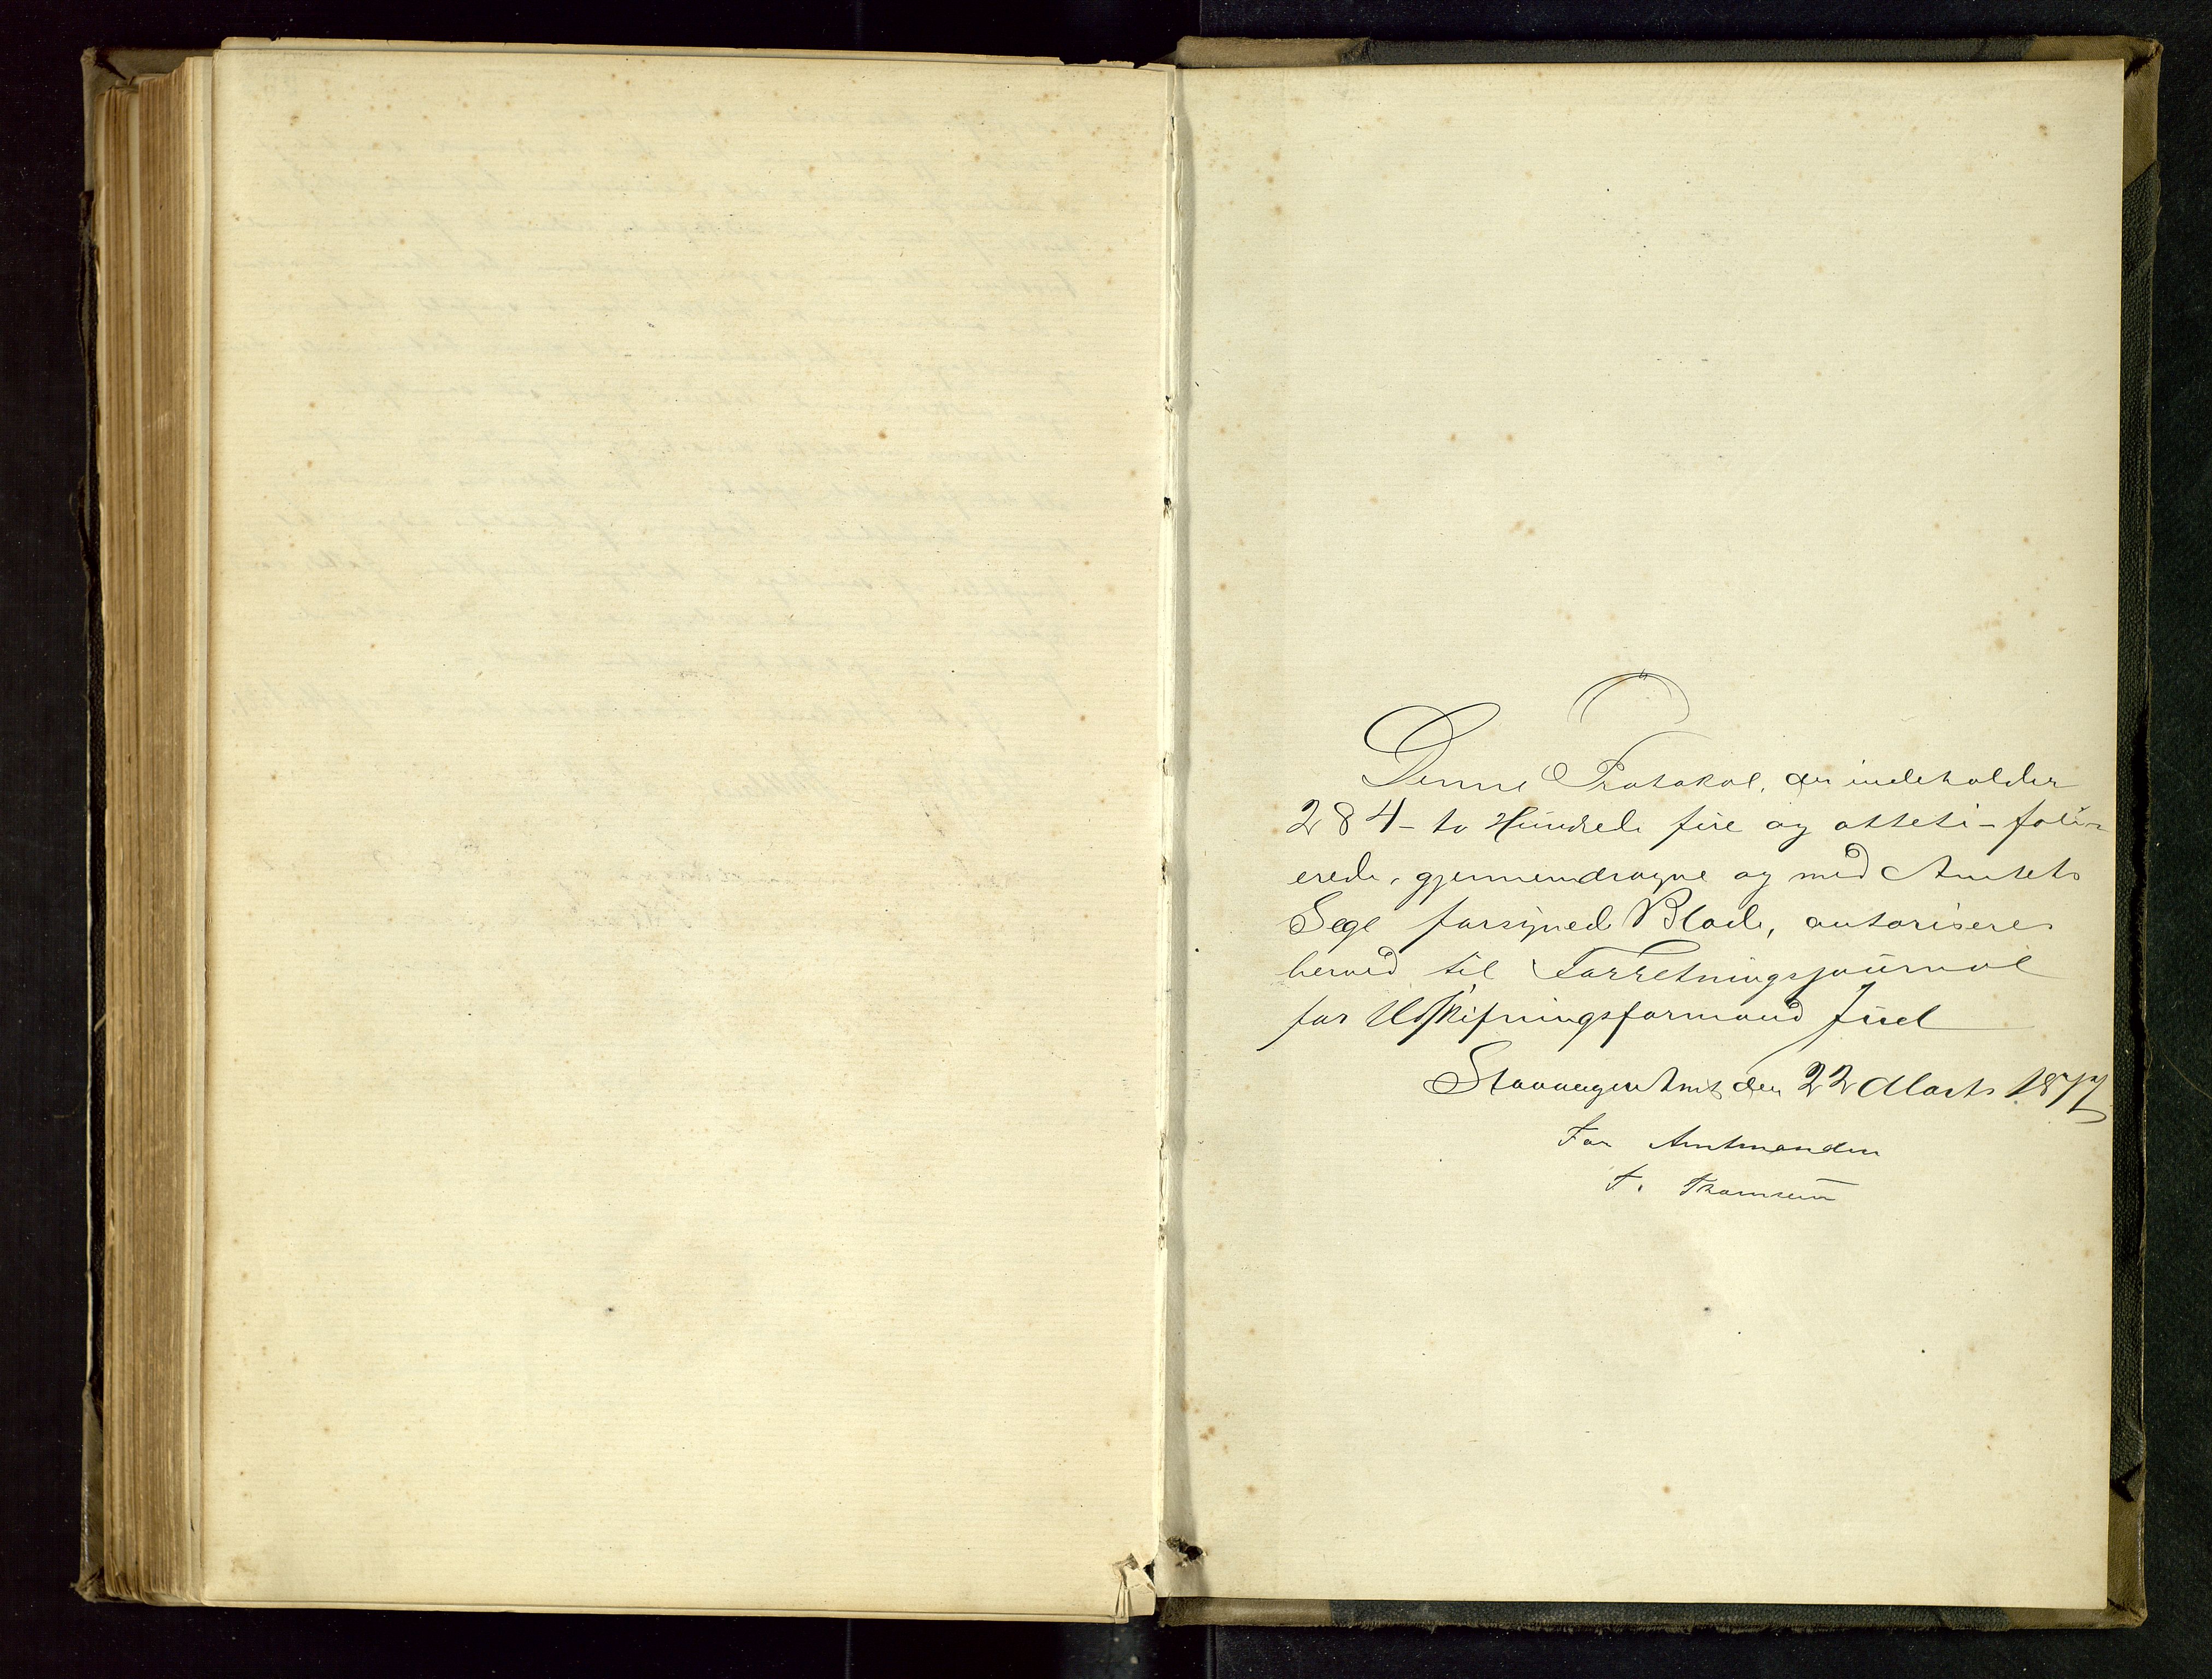 Denne Protokol, der indeholder
284 - to Hundrede fire og otteti - foli-
erede, gjennemdragne og med Amtets
Segl forsynede Blade, autoriseres
herved til Forretningsjournal
for Udskiftningsformand Juel
Stavanger Amt den 22 Marts 1877
For Amtmanden
F. Thomsen